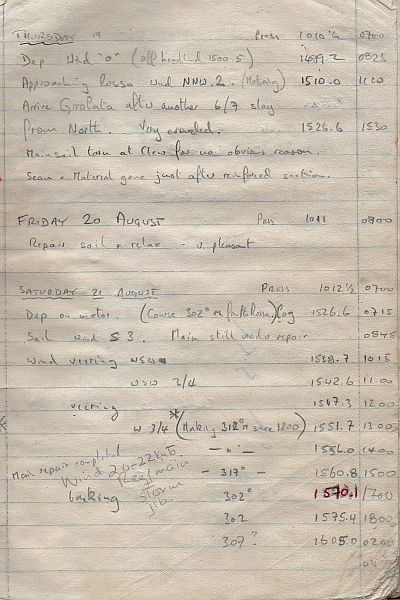 THURSDAY 19 Press 1010½ 0700
Dep Wind "0" (Off headland 1500.5) 1499.2 0825
Approaching Rossa wind NNW.2. (Motoring) 1510.0 1100
Arrive Girolata after another 6/7 slog
from North. Very crowded. 1526.6 1530
Mainsail torn at Clew for no obvious reason.
Seam & Material gone just after reinforced section.
FRIDAY 20 AUGUST Press 1011 0800
Repair sail & relax - v. pleasant
SATURDAY 21 AUGUST Press 1012½ 0700
Dep on motor. (Course 302° M for Rossa) Log 1526.6 0715
Sail Wind S 3. Main still under repair 0845
Wind veering WSW 1538.7 1015
WSW 3/4 1542.6 11.00
veering 1547.3 1200
W 3/4 * (Making 312° M since 1200) 1551.7 1300
Main repair completed — " — 1556.0 1400
Wind 20-22 knts. - 317° - 1560.8 1500
backing Reef main 302° 1570.1 1700
storm 302 1575.4 1800
jib. 307? 1605.0 0200